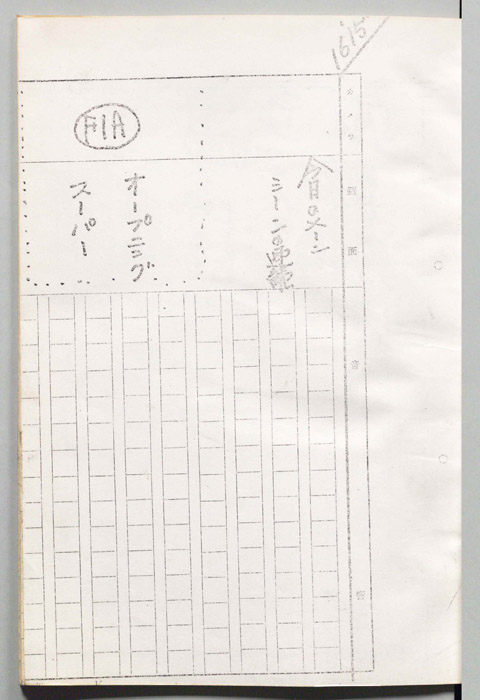 1615
カメラ
画面
音
今日のシーン
シーンの
オープニング
スーパー
F1A